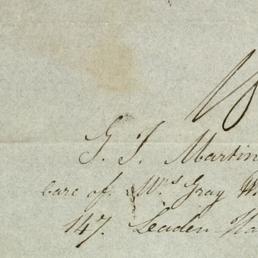 G. T. Martin
care of. Mrs Gray
147. Leaden Ha